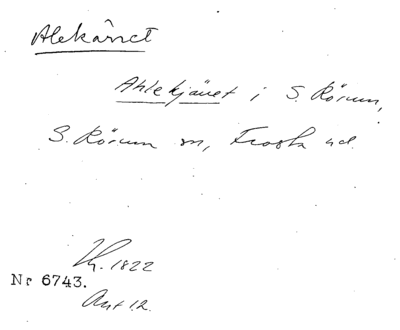 Alekärret
Ahlekjäret i S. Rörum,
S. Rörum sn, Frosta hd.
Lh. 1822
Nr 6743.
Akt 12.